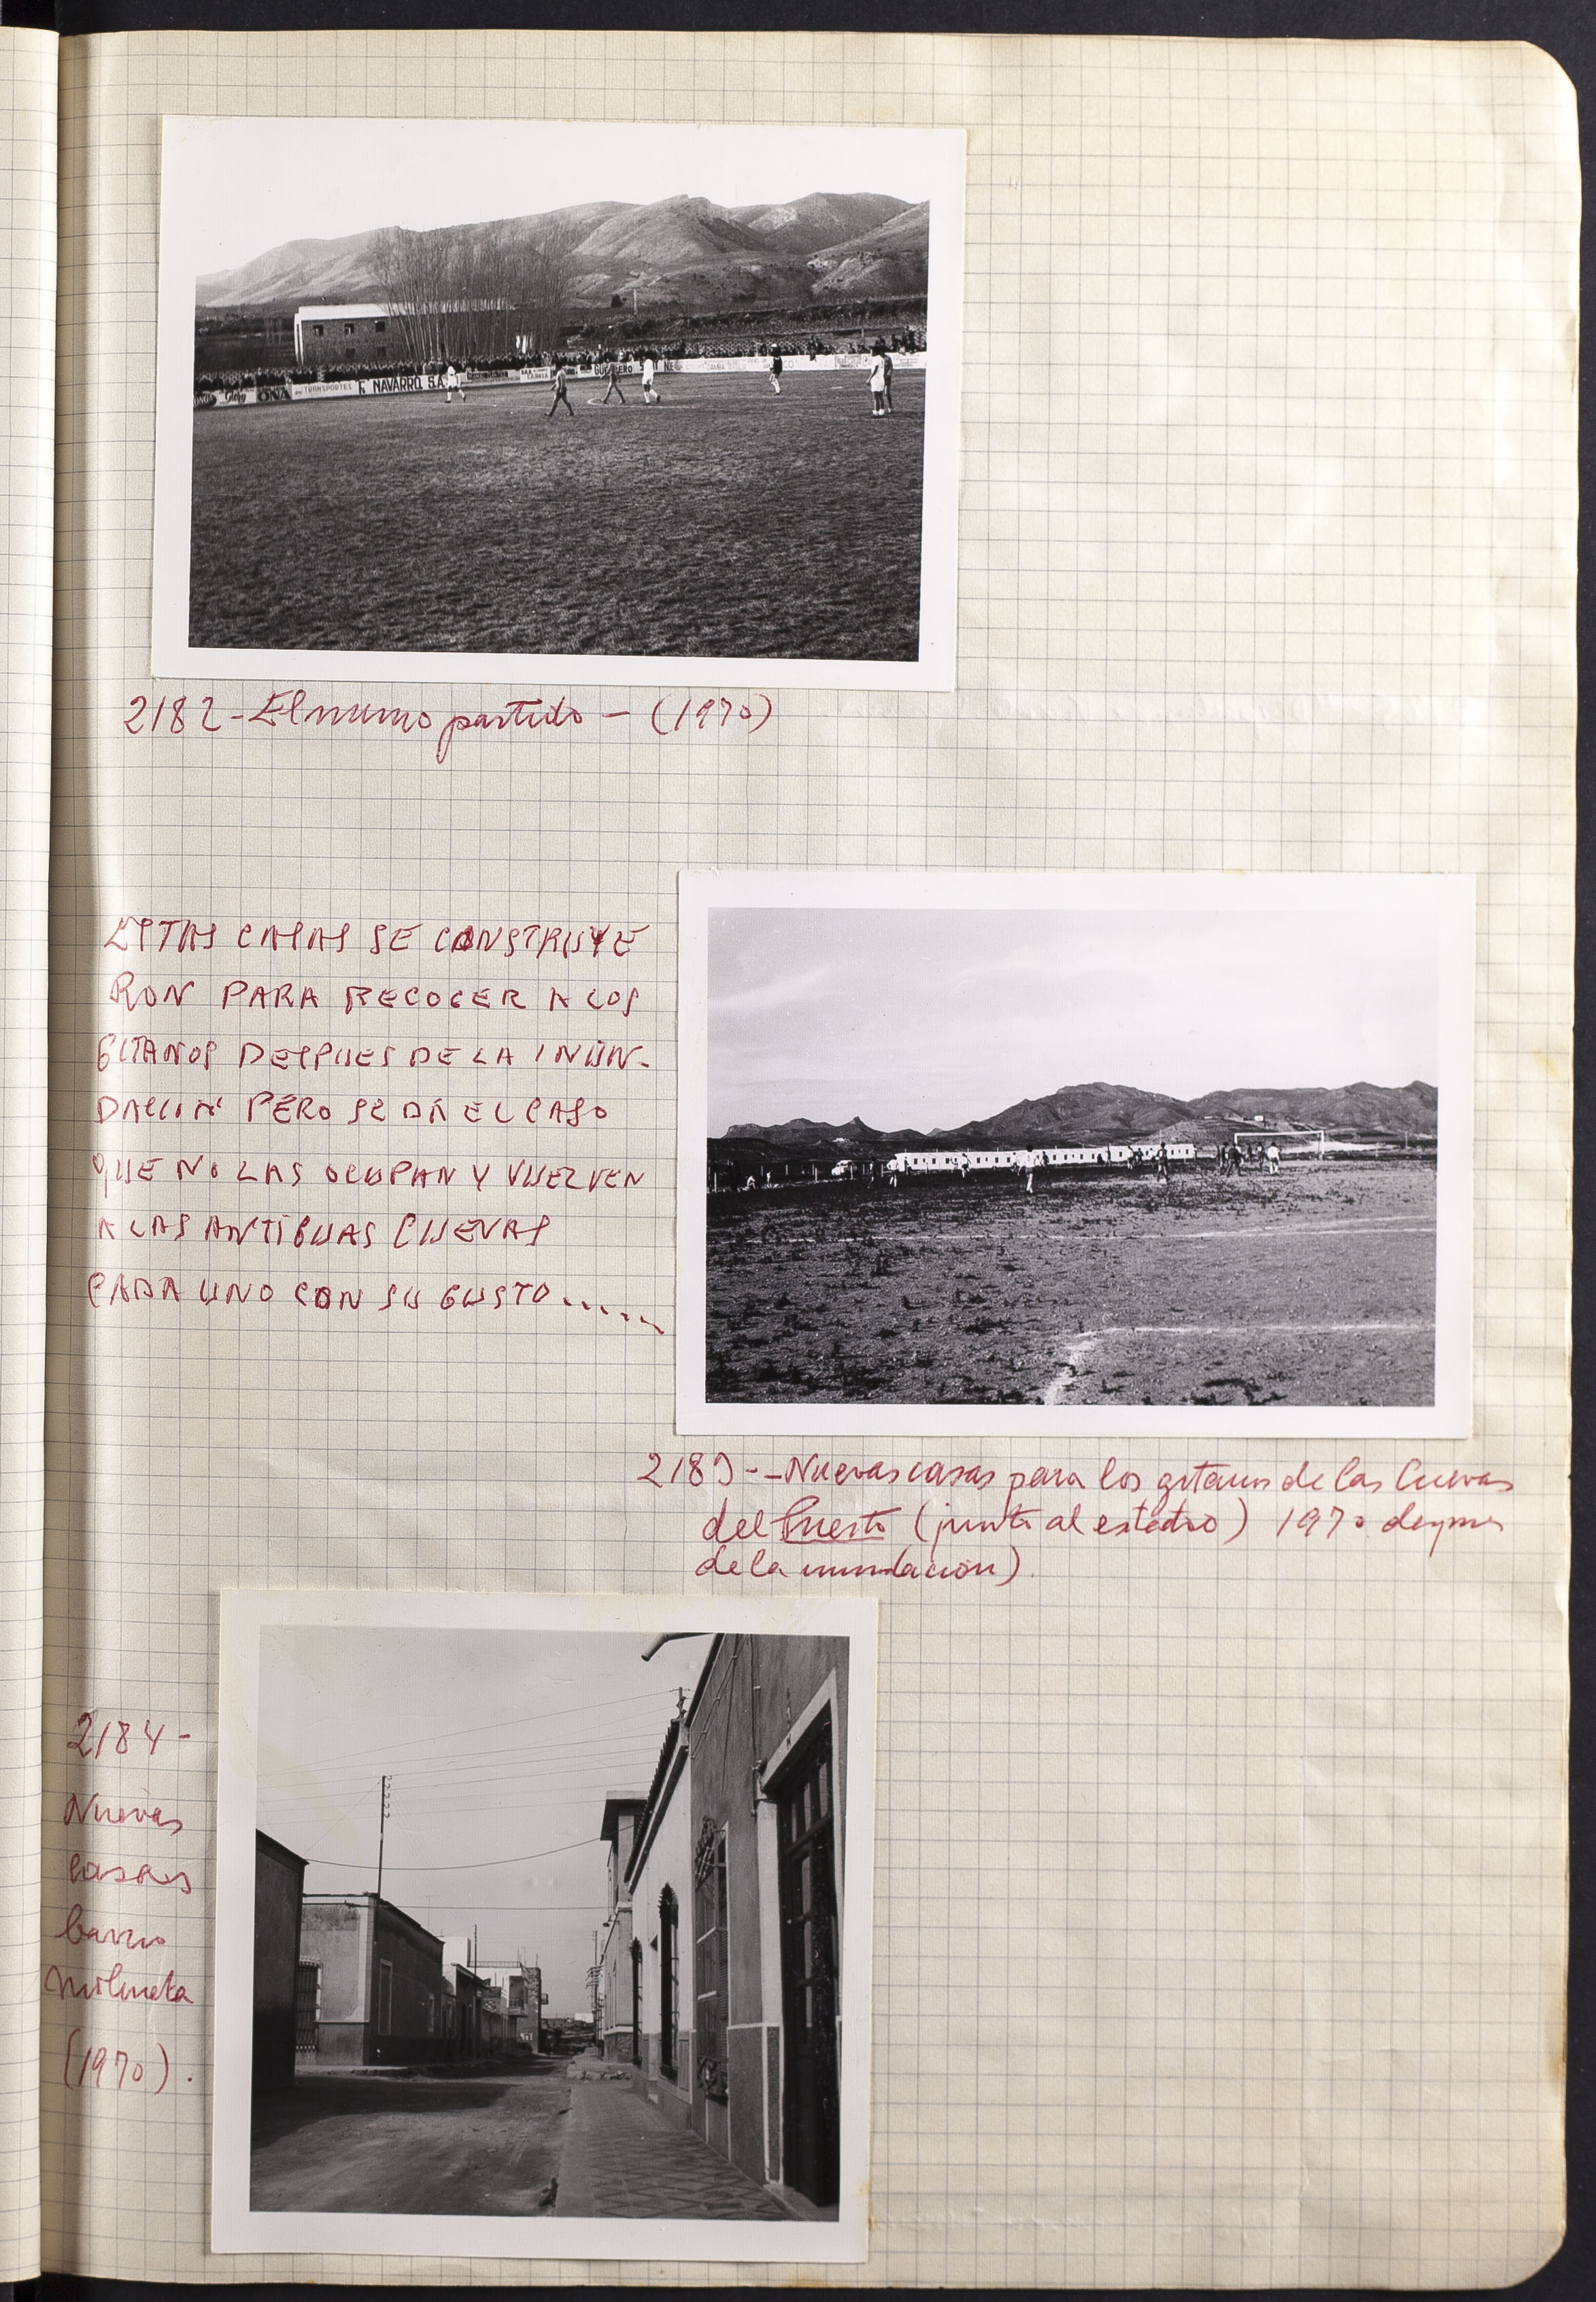 TRANSPORTES
F. NAVARRO, S.A.
2182 - El mismo partido - (1970)
ESTAS CASAS SE CONSTRUYE
RON PARA RECOGER A LOS
GITANOS DESPUES DE LA INUN-
DACCION PERO SE DA EL CASO
QUE NO LAS OCUPAN Y VUELVEN
A LAS ANTIGUAS CUEVAS
CADA UNO CON SU GUSTO.....
2183 - - Nuevas casas para los gitanos de las Cuevas
del Puerto (junto al estadio) 1970 despues
de la inundación)
2184 -
Nuevas
casas
barrio
Molineta
(1970).